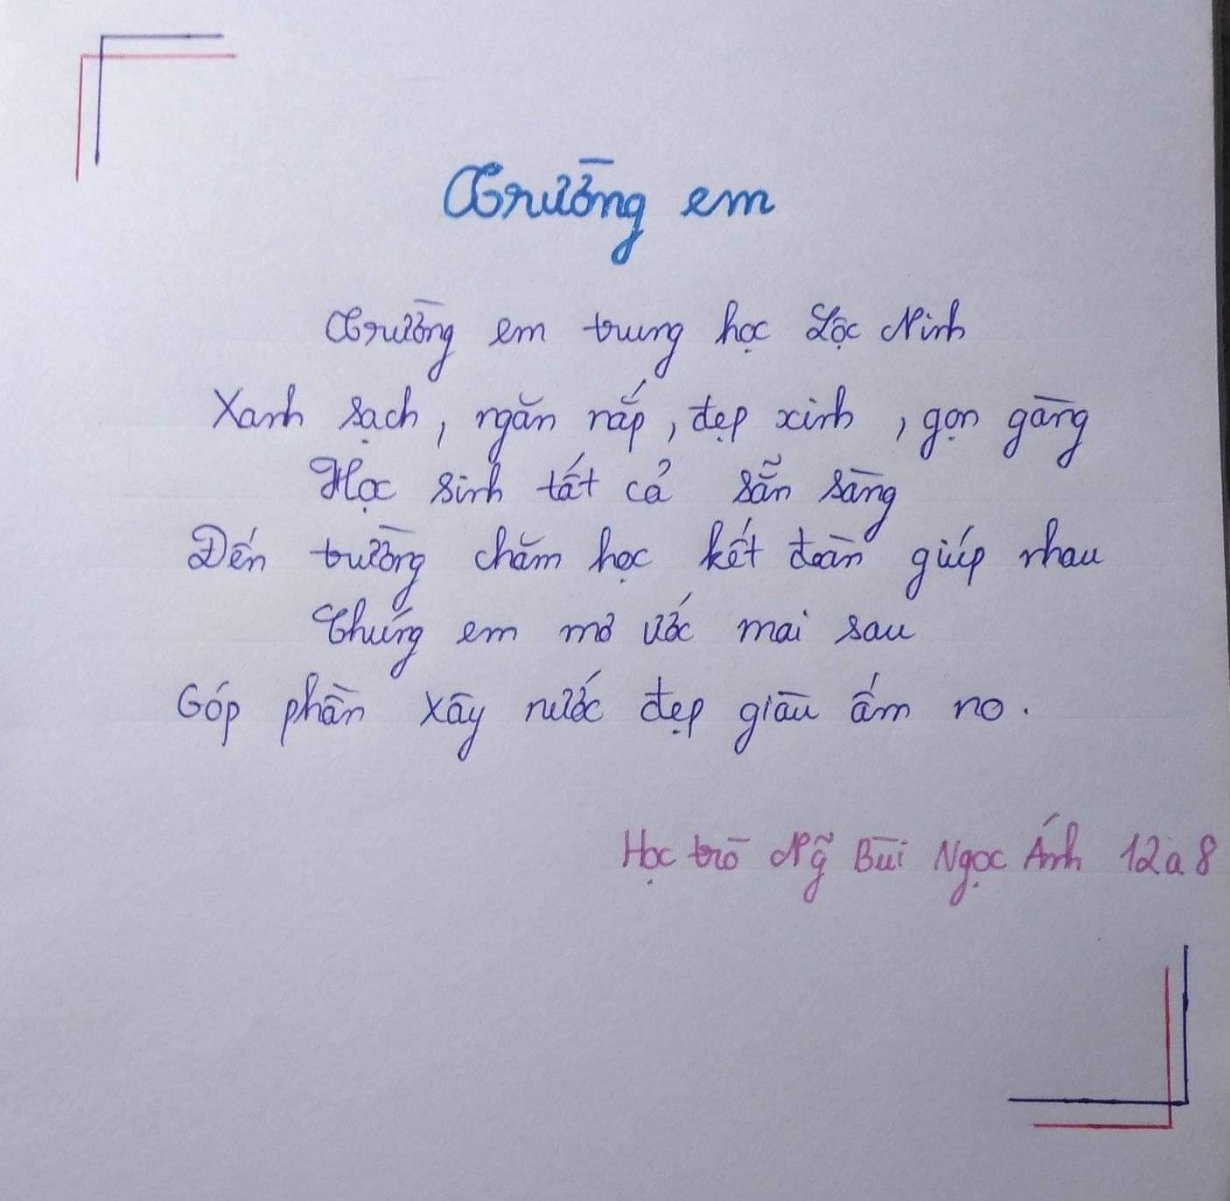 Trường em
Trường em trung học Lộc Ninh
Xanh sạch, ngăn nắp, đẹp xinh, gọn gàng
Học sinh tất cả sẵn sàng
Đến trường chăm học kết đoàn giúp nhau
Chúng em mơ ước mai sau
Góp phần xây nước đẹp giàu ấm no.
Học trò Ng̃ Bùi Ngọc Ánh 12a8